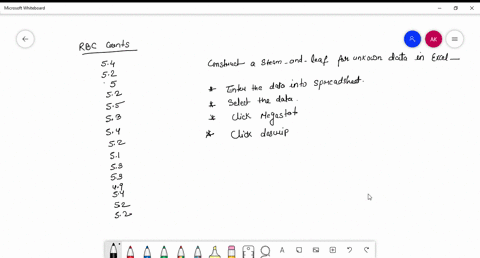 Microsoft Whiteboard
AK
RBC Counts
5.4
5.2
5
5.2
5.5
5.3
5.4
5.2
5.1
5.3
5.3
4.9
5.4
5.2
5.2
Construct a stem-and-leaf for unknown data in Excel
* Enter the data into spreadsheet.
* Select the data.
* Click Megastat
* Click descrip